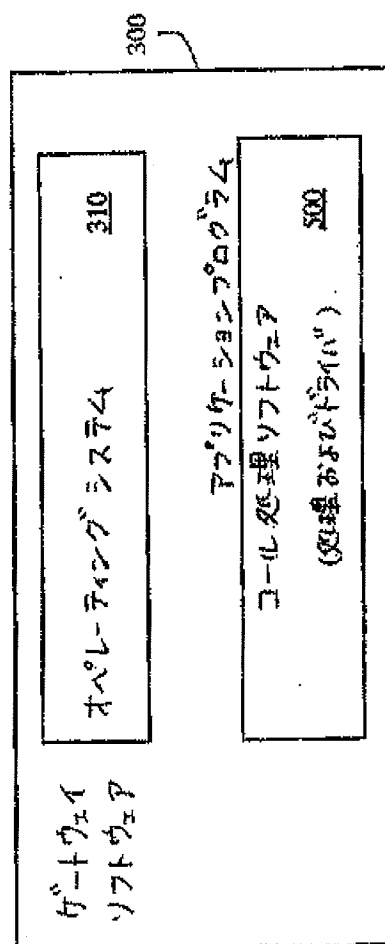 ゲートウェイ
ソフトウェア
オペレーティング システム
310
アプリケーションプログラム
コール処理ソフトウェア
(処理およびドライバ)
500
300